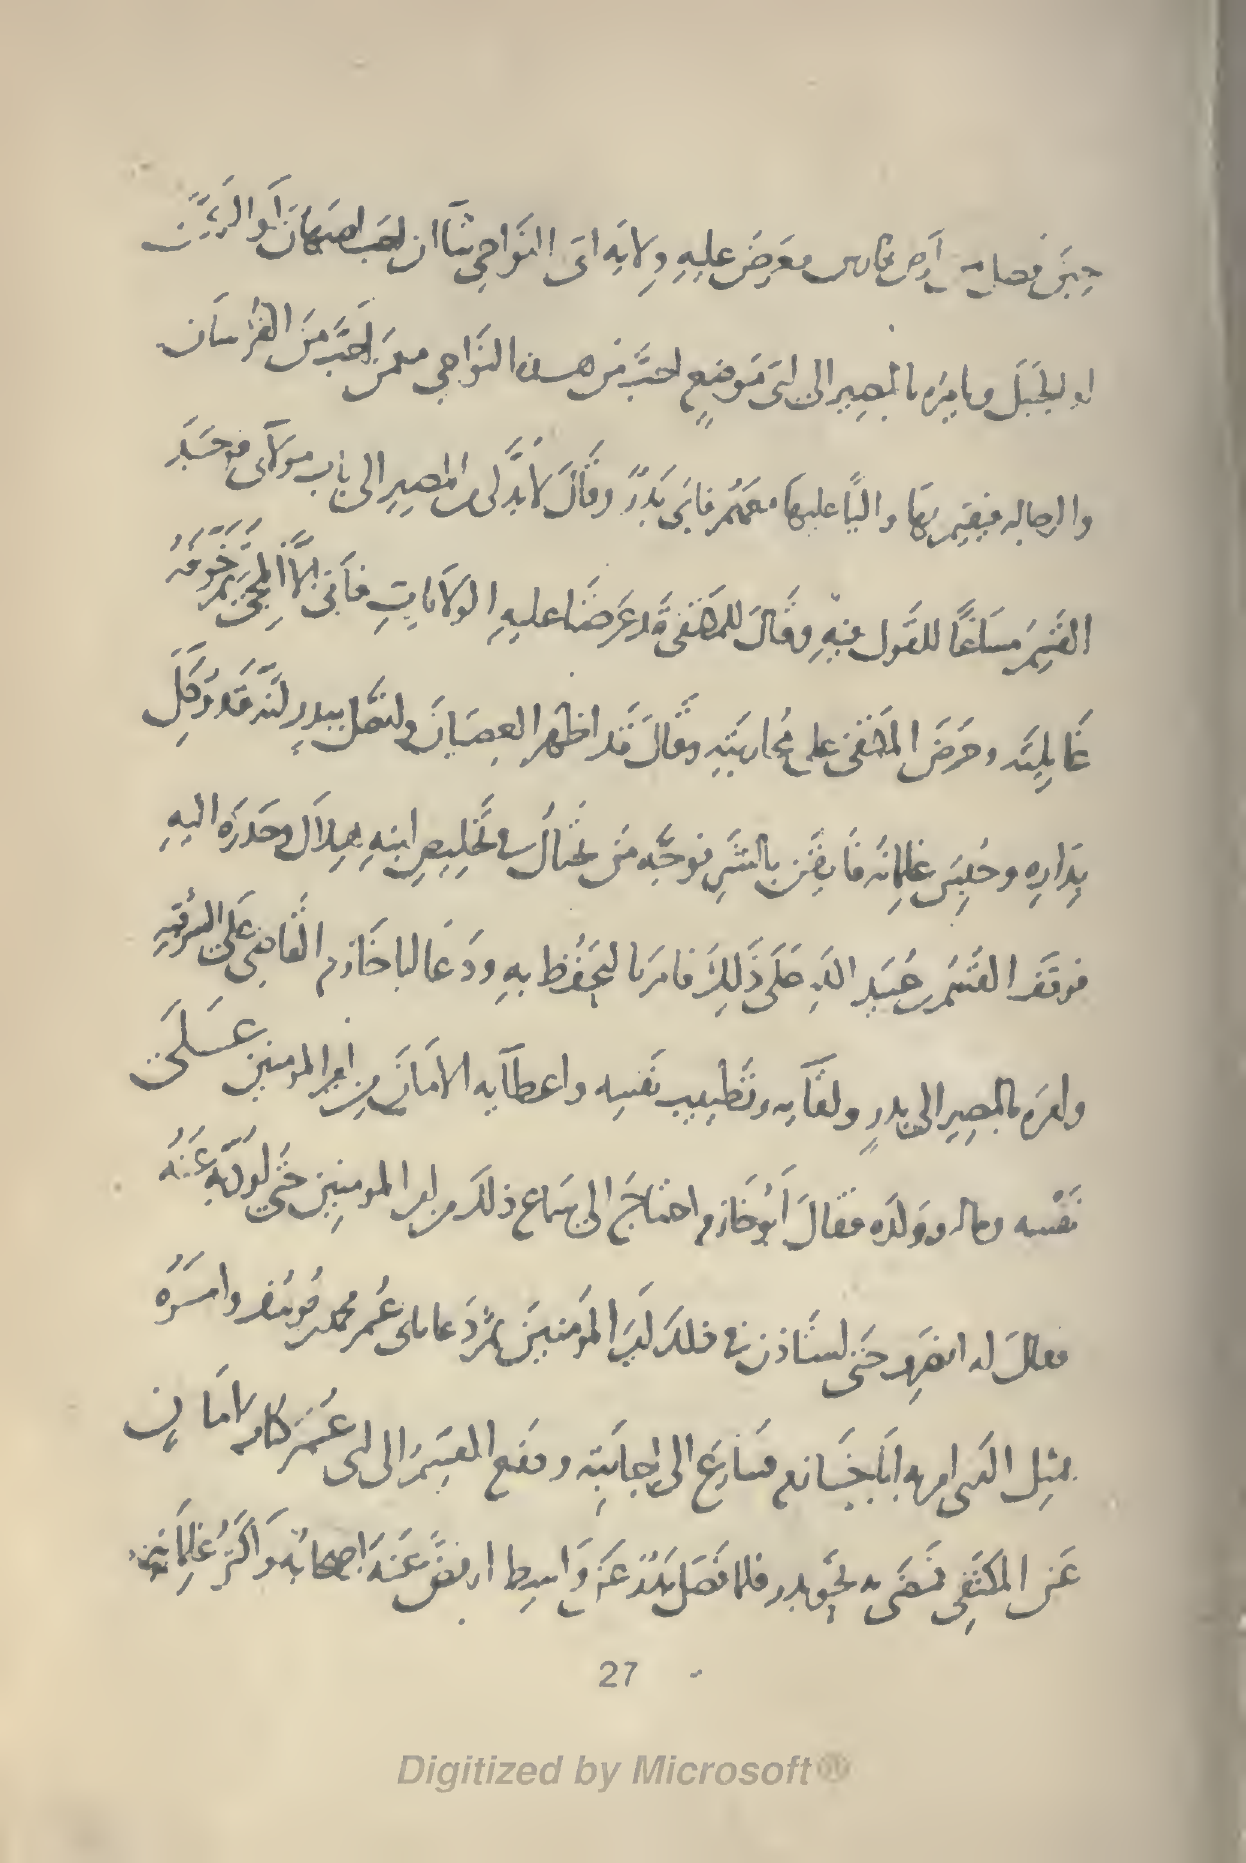 حِينَ فصل من أرض فارس فعَرضَ عليهِ ولايَه اىّ النَواحِي شآ ان احَب اصبهان أو الرَيّ
او الجَبَل ويامره بالمصِيرِ الى اىّ مَوضعٍ احبَّ من هذه النَواحِي مع مَن احَبَّ مِنَ الفرسَان
والرجاله فيقيم بهَا واليًا عليهَا معَهُم فابَى بَدْرٌ وقَالَ لا بُدَّ لى من المصِيرِ الى بابِ مولآى فوجَدَ
القسم مسَاغًا للقَول فيهِ وقَالَ للمكتفى قَد عَرَضنَا عليهِ الولاَيَاتِ فأبَى الّا المجى ثم خوفه
غَايِلتَه وحَرَضَ المكتفى على مُحارَبَتِه وقَالَ قَد اظهر العِصيَانَ واتصَل ببدرٍ انّه قَد وُكِّلَ
بِدَارِهِ وحُبِسَ غلِمانُه فَايقَن بالشَرِ فوَجَّه مَن يحتالُ فى تَخلِيصِ ابنِهِ هِلالَ وحَدرَه اليهِ
فوقَف القَسَم بن عُبَيد اللهِ عَلَى ذَلِكَ فامر بالتحَفُظ بهِ ودَعَا ابا خَازم القَاضِى عَلَى الشرقيّهِ
وامرَه بالمصِيرِ الى بدرٍ ولقآيه وتَطييب نَفسِه واعطآيه الامَانَ مِن امير المومنين عَلَى
نَفْسه وماله ووَلدَه فقَالَ أبُو خَازم احتاجَ الى سَماع ذلكَ من امير المومنِين حتَّى اودّيهِ عَنهُ
فقالَ له انصَرِف حَتى استَاذن لك فى ذلكَ اميرَ المؤمنينَ ثمَّ دَعا بابى عُمر محمد بن يوسُف وامَرَهُ
بمثِل الذى امر به ابَا خَازم فسَارَعَ الى اجابَتِه ودَفَع القَسِمُ الى ابى عُمَرَ كتَاب امَانٍ
عَن المكتَفِى فمَضَى به نَحوَ بدر فلما فَصَل بَدرٌ عَن وَاسِط ارفَضَّ عَنهُ اصحَابُه وَاكثَرُ غلِمَانِه
27
Digitized by Microsoft®